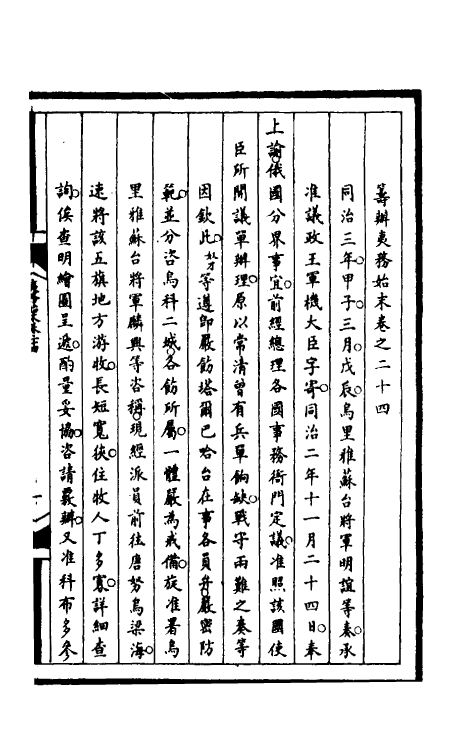 籌辦夷務始末卷之二十四
同治三年甲子三月戊辰烏里雅蘇台將軍明誼等奏承
准議政王軍機大臣字寄同治二年十一月二十四日奉
上諭俄國分界事宜前經總理各國事務衙門定議准照該國使
臣所開議單辦理原以常清曾有兵單餉缺戰守兩難之奏等
因欽此奴才等遵即嚴飭塔爾巴哈台在事各員弁嚴密防
範並分咨烏科二城各飭所屬一體嚴為戒備旋准署烏
里雅蘇台將軍麟興等咨稱現經派員前往唐努烏梁海
速將該五旗地方游牧長短寬狹住牧人丁多寡詳細查
詢俟查明繪圖呈遞酌量妥協咨請覈辦又准科布多參